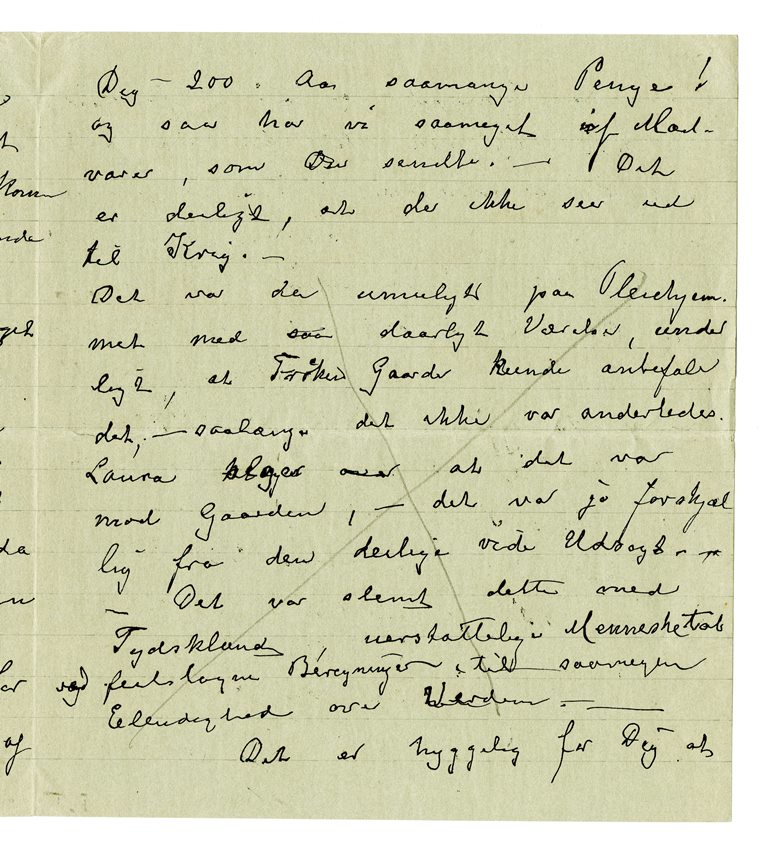 Dig – 200. Aa saamange Penge!
og saa har vi saameget af Mad-
varer, som Du sendte. — Det
er deiligt, at der ikke seer ud
til Krig. —
Det var da umuligt paa Pleiehjem-
met med saa daarligt Værelse, under
ligt, at Frøken Gaarde kunde anbefale
det, — saalænge det ikke var anderledes.
Laura klager over at det var
mod Gaarden, — det var jo forskjæl
lig fra den deilige vide Udsigt. —
Det var slemt dette med
Tydskland, uerstattelige Menneskétab
ved feilslagne Beregninger, til saamegen
Elendighed over Verden. —
Det er hyggelig for Dig at